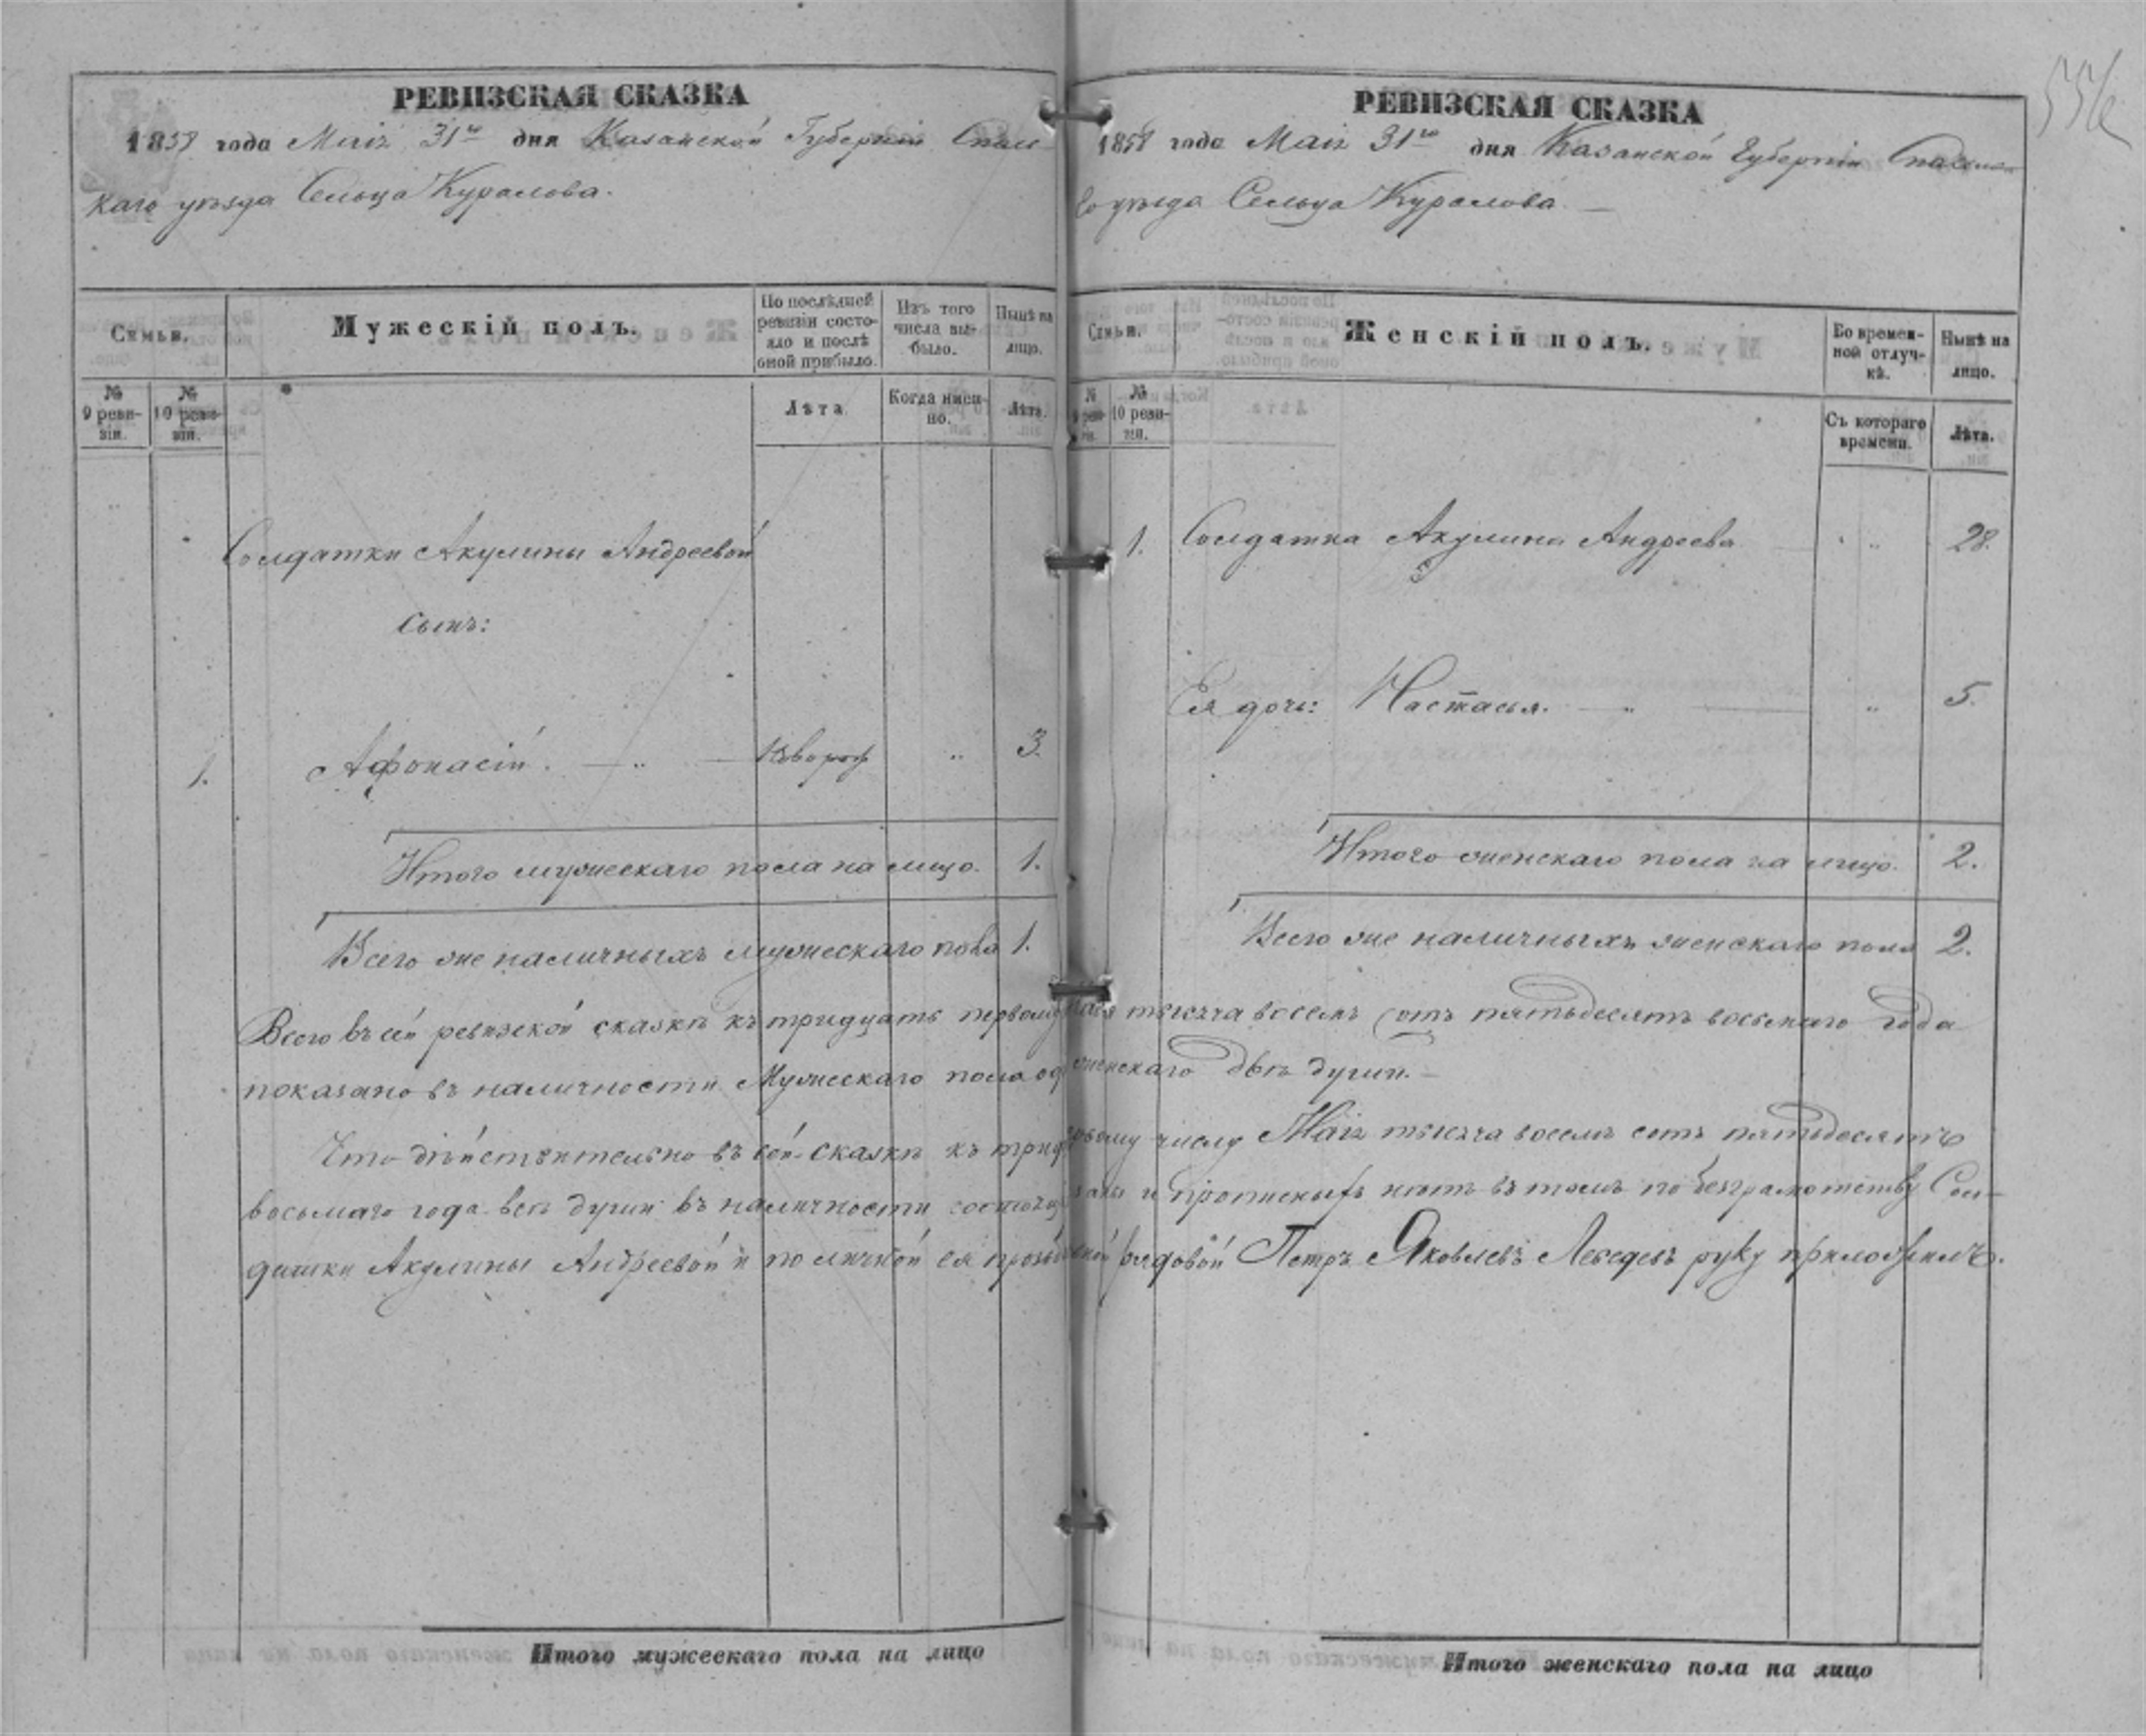 556
РЕВИЗСКАЯ СКАЗКА
1858 года Маія 31го дня Казанской Губерніи Спас-
каго уѣзда Сельца Куралова.
Семьи.
Мужескій полъ.
По послѣдней ревизіи состояло и послѣ оной прибыло.
Изъ того числа выбыло.
Нынѣ на лицо.
№ 9 ревизіи.
№ 10 ревизіи.
Лѣта
Когда именно.
Лѣта.
Солдатки Акулины Андреевой
сынъ:
1. Афонасій. — „ — новорож „ 3.
Итого мужескаго пола на лицо. 1.
Всего же наличныхъ мужескаго пола 1.
РЕВИЗСКАЯ СКАЗКА
1858 года Маія 31го дня Казанской Губерніи Спаска-
го уѣзда Сельца Куралова. —
Семьи.
Женскій полъ.
Во временной отлучкѣ.
Нынѣ на лицо.
№ 9 ревизіи.
№ 10 ревизіи.
Съ котораго времени.
Лѣта.
1. Солдатка Акулина Андреева — „ 28.
Ея дочь: Настасья. — „ — „ 5.
Итого женскаго пола на лицо. 2.
Всего же наличныхъ женскаго пола 2.
Всего въ сей ревизской сказкѣ къ тридцать первому Маія тысяча восемь сотъ пятьдесятъ восьмаго года
показано въ наличности Мужескаго пола од женскаго двѣ души. —
Что дѣйствительно въ сей сказкѣ къ трид первому числу Маія тысяча восемь сотъ пятьдесятъ
восьмаго года всѣ души въ наличности состоящ и прописныхъ нѣтъ въ томъ по безграмотству Сол-
датки Акулины Андреевой и по личной ея прозь рядовой Петръ Яковлевъ Лебедевъ руку приложилъ.
Итого мужескаго пола на лицо
Итого женскаго пола на лицо